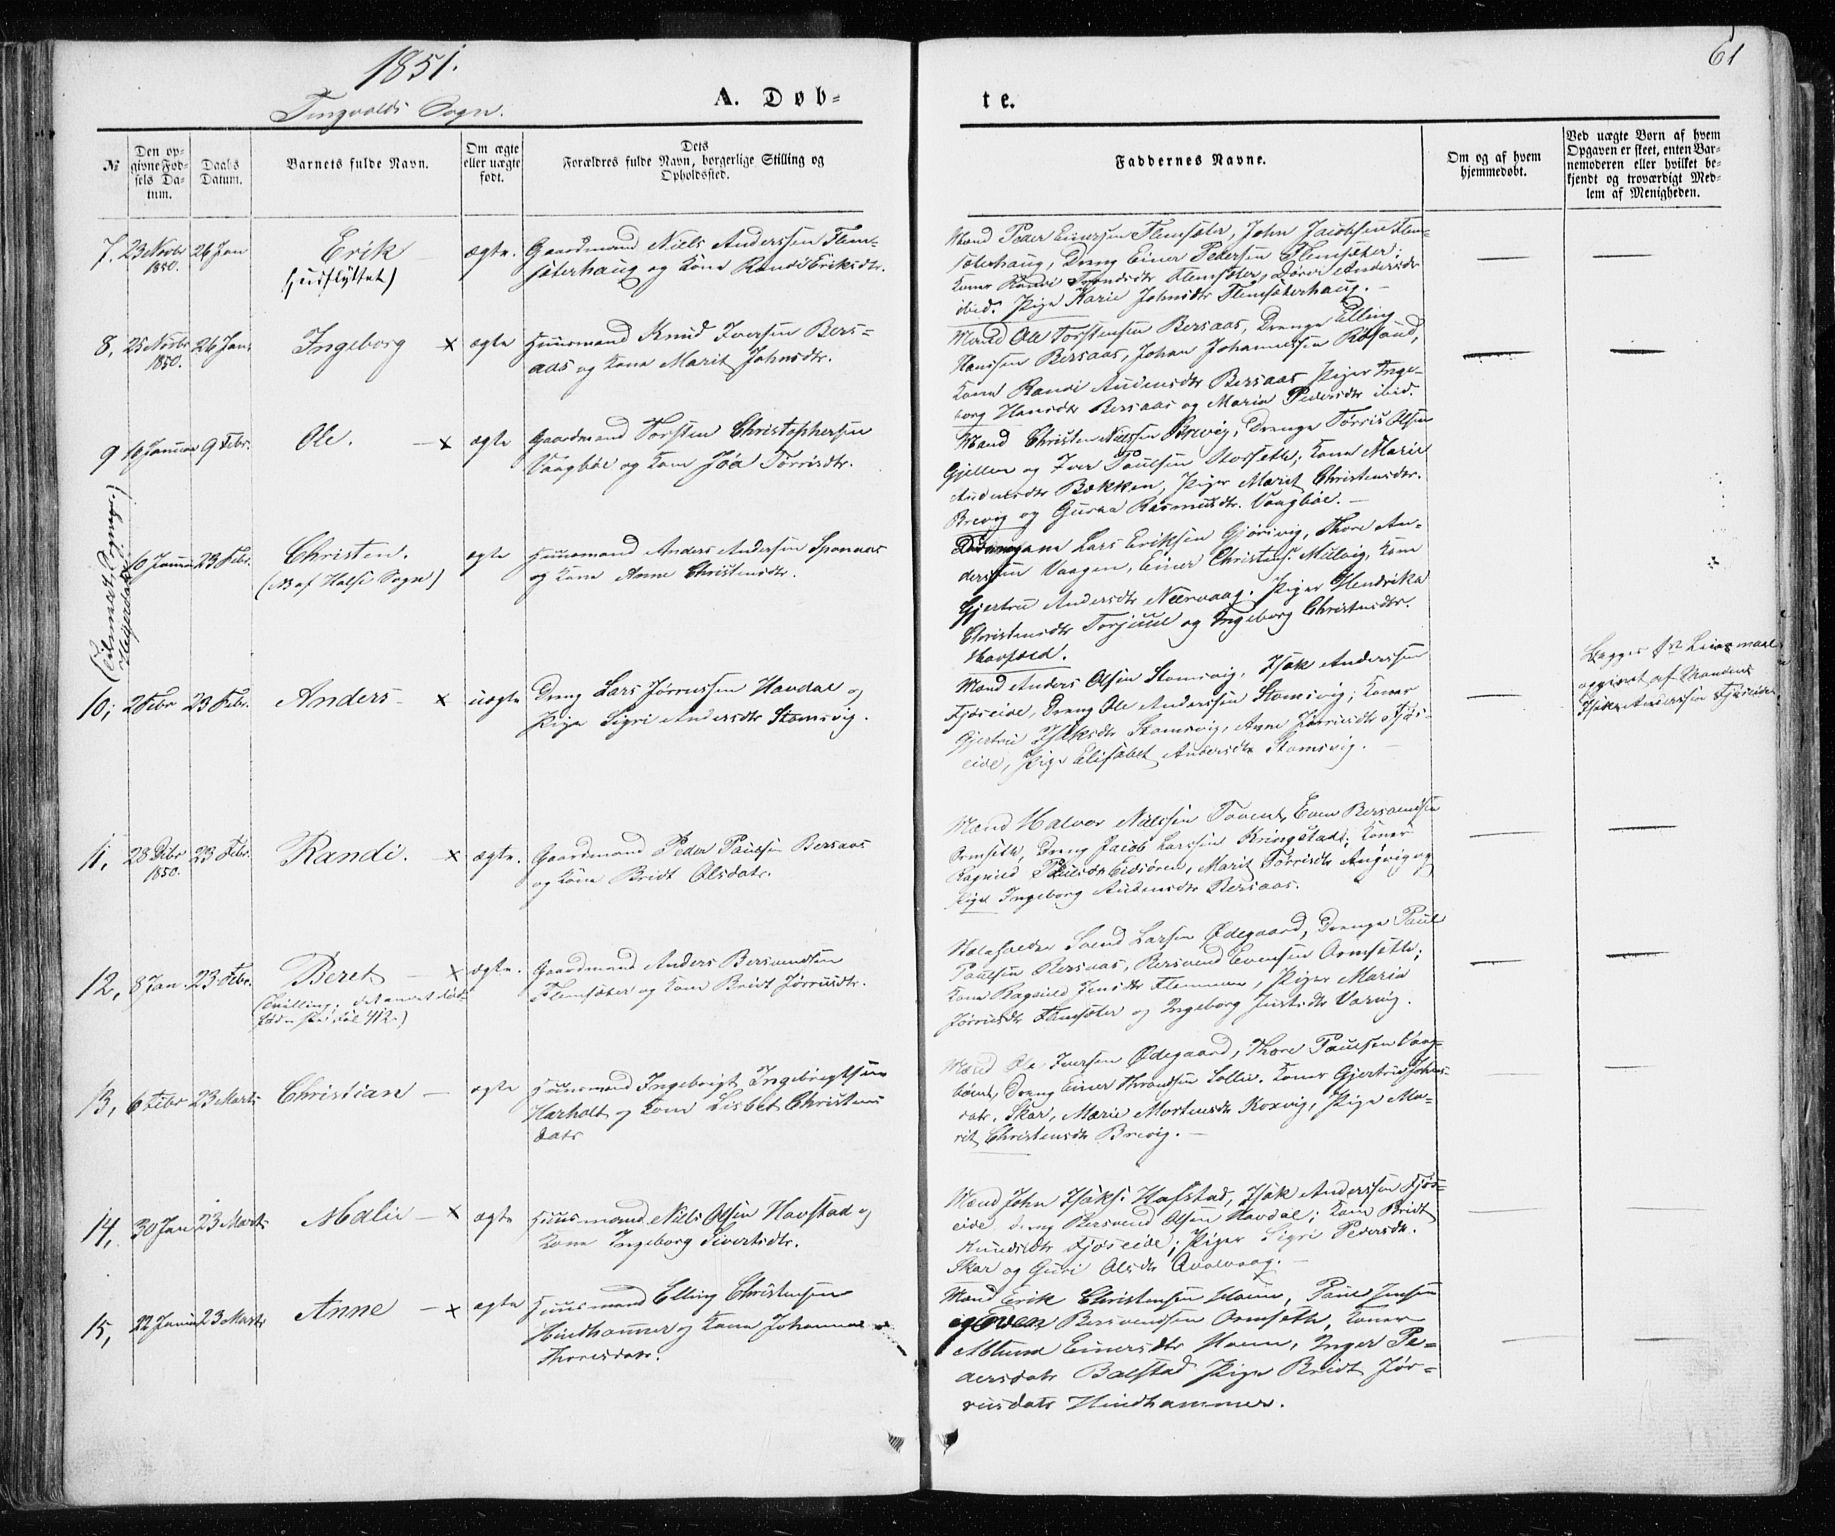 1851.
61
Tingvolds Sogn.
A. Døb-
te.
№
Den op-
givne Fød-
sels Da-
tum.
Daabs
Datum.
Barnets fulde Navn.
Om ægte
eller uægte
født.
Dets
Forældres fulde Navn, borgerlige Stilling og
Opholdssted.
Faddernes Navne.
Om og af hvem
hjemmedøbt.
Ved uægte Børn af hvem
Opgaven er skeet, enten Bar-
nemoderen eller hvilket be-
kjendt og troværdigt Med-
lem af Menigheden.
7. 23 Novbr 26 Jan Erik ægte. Gaardmand Niels Anderssen Flem-
1850. (udflyttet) sæterhaug og Kone Randi Eriksdtr.
Mænd Peder Einersen Flemsæter, John Jacobsen Flem-
sæterhaug, Dreng Einer Pedersen Flemsæter;
Koner Randi Trondsdtr Flemsæter, Andersdtr
ibid. Pige Marie Johnsdtr Flemsæterhaug. —
8, 25 Novbr 26 Jan, Ingeborg x ægte Huusmand Knud Iversen Bers-
1850. aas og Kone Marit Johnsdtr.
Mænd Ole Torstensen Bersaas, Drenge Elling
Hanssen Bersaas, Johan Johannessen Røsand,
Kone Randi Andersdtr Bersaas Piger Inge-
borg Hansdtr Bersaas og Maria Pedersdtr ibid.
9 10 Januar 9 Febr. Ole. x ægte Gaardmand Torsten Christophersen
Vaagbøe og Kone Jøa Tørrisdtr.
Mænd Christen Nielssen Brevig, Drenge Tørris Olsen
Gjellen og Iver Paulsen Storseth; Kone Marie
Andersdtr Bækken, Piger Marit Christensdtr.
Brevig og Guraa Rasmusdtr. Vaagbøe. —
6 Januar 23 Febr. Christen. ægte Huusmand Anders Andersen Sponaas
(NB af Halse Sogn) og Kone Anne Christensdtr.
Lars Eriksen Gjørivig, Thore An-
derssen Vaagen, Einer Christens. Kone
Gjertru Andersdtr Neervaag. Piger Hendrika
Christensdtr Torjuul og Ingeborg Christensdtr.
10; 2 Febr 23 Febr. Anders — x uægte Dreng Lars Jørrussen Havdal og
Pige Sigri Andersdtr Stomsvig.
Mænd Anders Olsen Stomsvig, Isak Anderssen
Fjøseide, Dreng Ole Anderssen Stomsvig; Koner
Gjertru Isaksdtr Stomsvig, Anne Jørrisdtr Fjøs-
eide, Pige Elisabet Andersdtr Stomsvig. —
Begges 1st Leiermaal
opgivet af Manden
Isak Anderssen Fjøseide
11, 28 Debr 23 Febr. Randi. x ægte. Gaardmand Peder Paulsen Bersaas
1850. og Kone Bridt Olsdatr.
Mænd Halvor Nielssen Tøvend, Even Bersvendsen
Ormseth, Dreng Jacob Larssen Kringstad; Koner
Ragnild Paulsdtr Eidsøren, Marit Tørrisdtr Angvig og
Pige Ingeborg Andersdtr Bersaas.
12, 8 Jan. 23 Febr. Beret — x ægte. Gaardmand Anders Bersvendsen
(Tvilling. det andet død- Flemsæter og Kone Bridt Jørrusdtr.
født)
Svend Larsen Ødegaard, Drenge Paul
Paulsen Bersaas, Bersvend Evensen Ormseth;
Kone Ragnild Jensdtr Flemmen, Piger Maria
Jørrusdtr Flemsæter og Ingeborg Justsdtr Varvig.
13, 6 Febr 23 Marts Christian — ægte Huusmand Ingebrigt Ingebrigtsen
Harholt og Kone Lisbet Christens
datr
Mænd Ole Iversen Ødegaard, Thore Paulsen Vaag-
bøent, Dreng Einer Throndsen Sollie. Koner Gjertrue Johns-
datr. Skar, Marie Mortensdtr Koxvig, Pige Ma-
rit Christensdtr Brevig. —
14, 30 Jan 23 Marts Malie — x ægte Huusmand Niels Olsen Havstad og
Kone Ingeborg Sivertsdtr.
Mænd John Isaks. Hafstad, Isak Anderssen Fjøs-
eide dreng Bersvend Olsen Havdal; Kone Bridt
Knudsdtr Fjøseide; Piger Sigri Pedersdtr.
Skar og Guri Olsdtr Qvalvaag. —
15, 22 Januar 23 Marts Anne — x ægte Huusmand Elling Christensen
Hindhammer og Kone Johanna
Thoresdatr.
Mænd Erik Christensen Hoem, Paul Jensen
og Even Bersvendsen Ormseth, Koner
Ablund Einersdtr Hoem, Inger Pe-
dersdatr Balstad Pige Bridt Jør-
rusdatr Hindhammer.